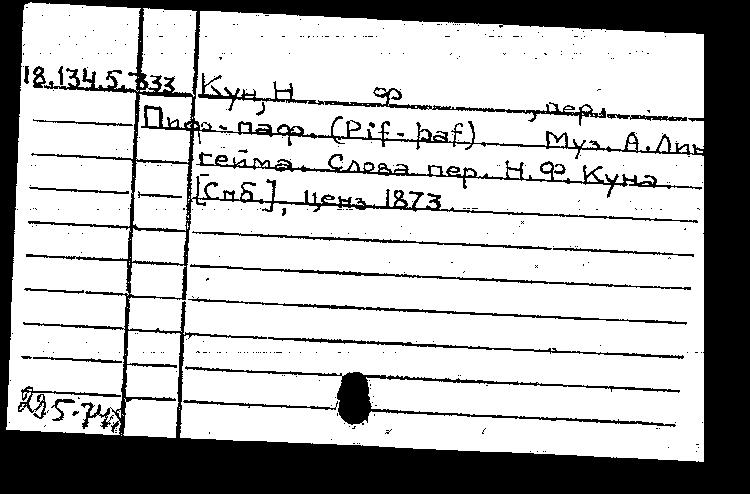 18.134.5.333 Кун, Н Ф , пер.
Пиф-паф. (Pif-paf). Муз. А. Лин
гейма. Слова пер. Н. Ф. Куна.
[Спб.], ценз 1873.
225.748